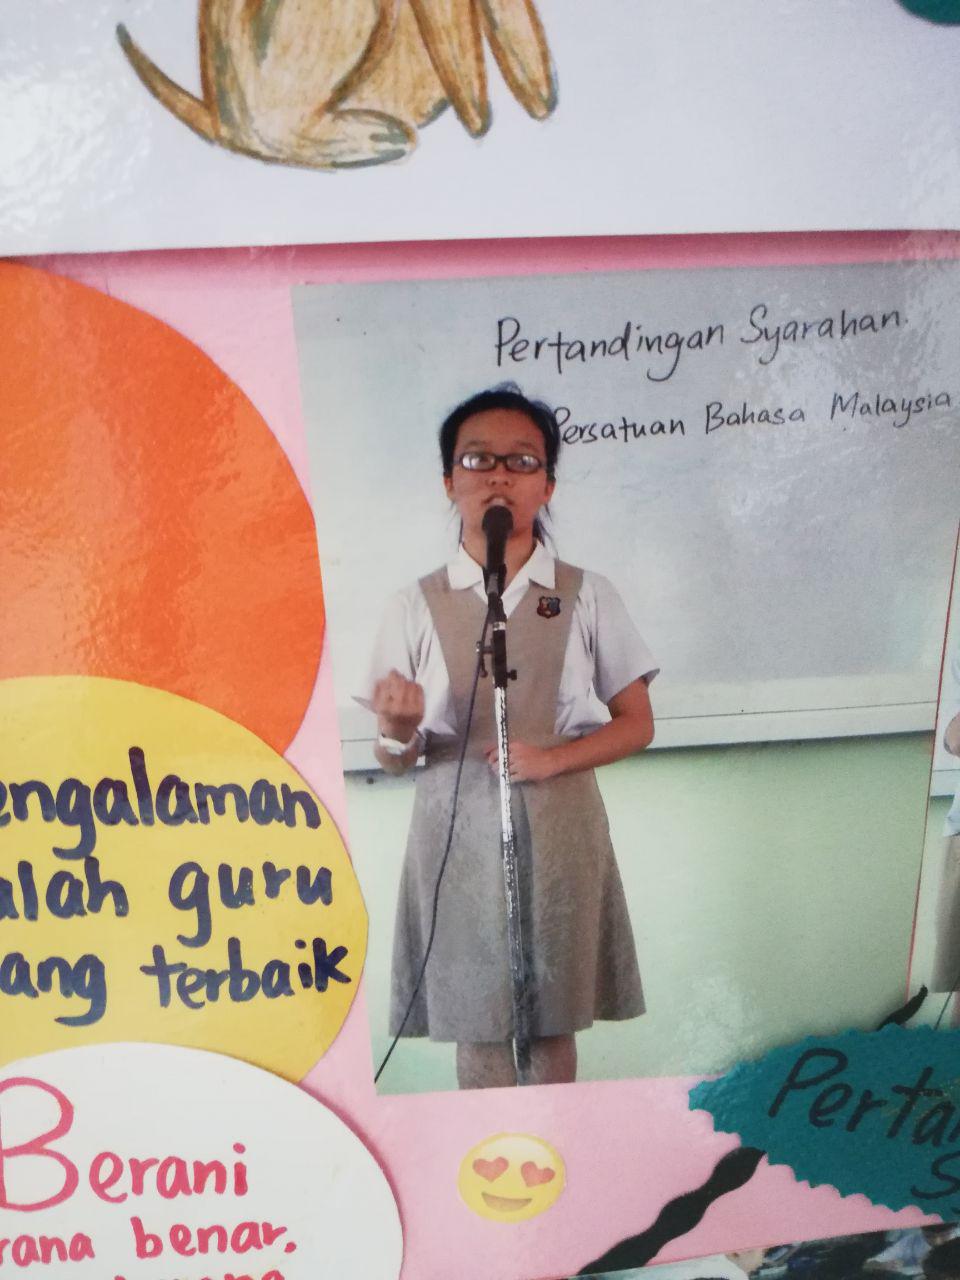 Pertandingan Syarahan.
Persatuan Bahasa Malaysia
engalaman
alah guru
ang terbaik
Berani
rana benar.
Perta